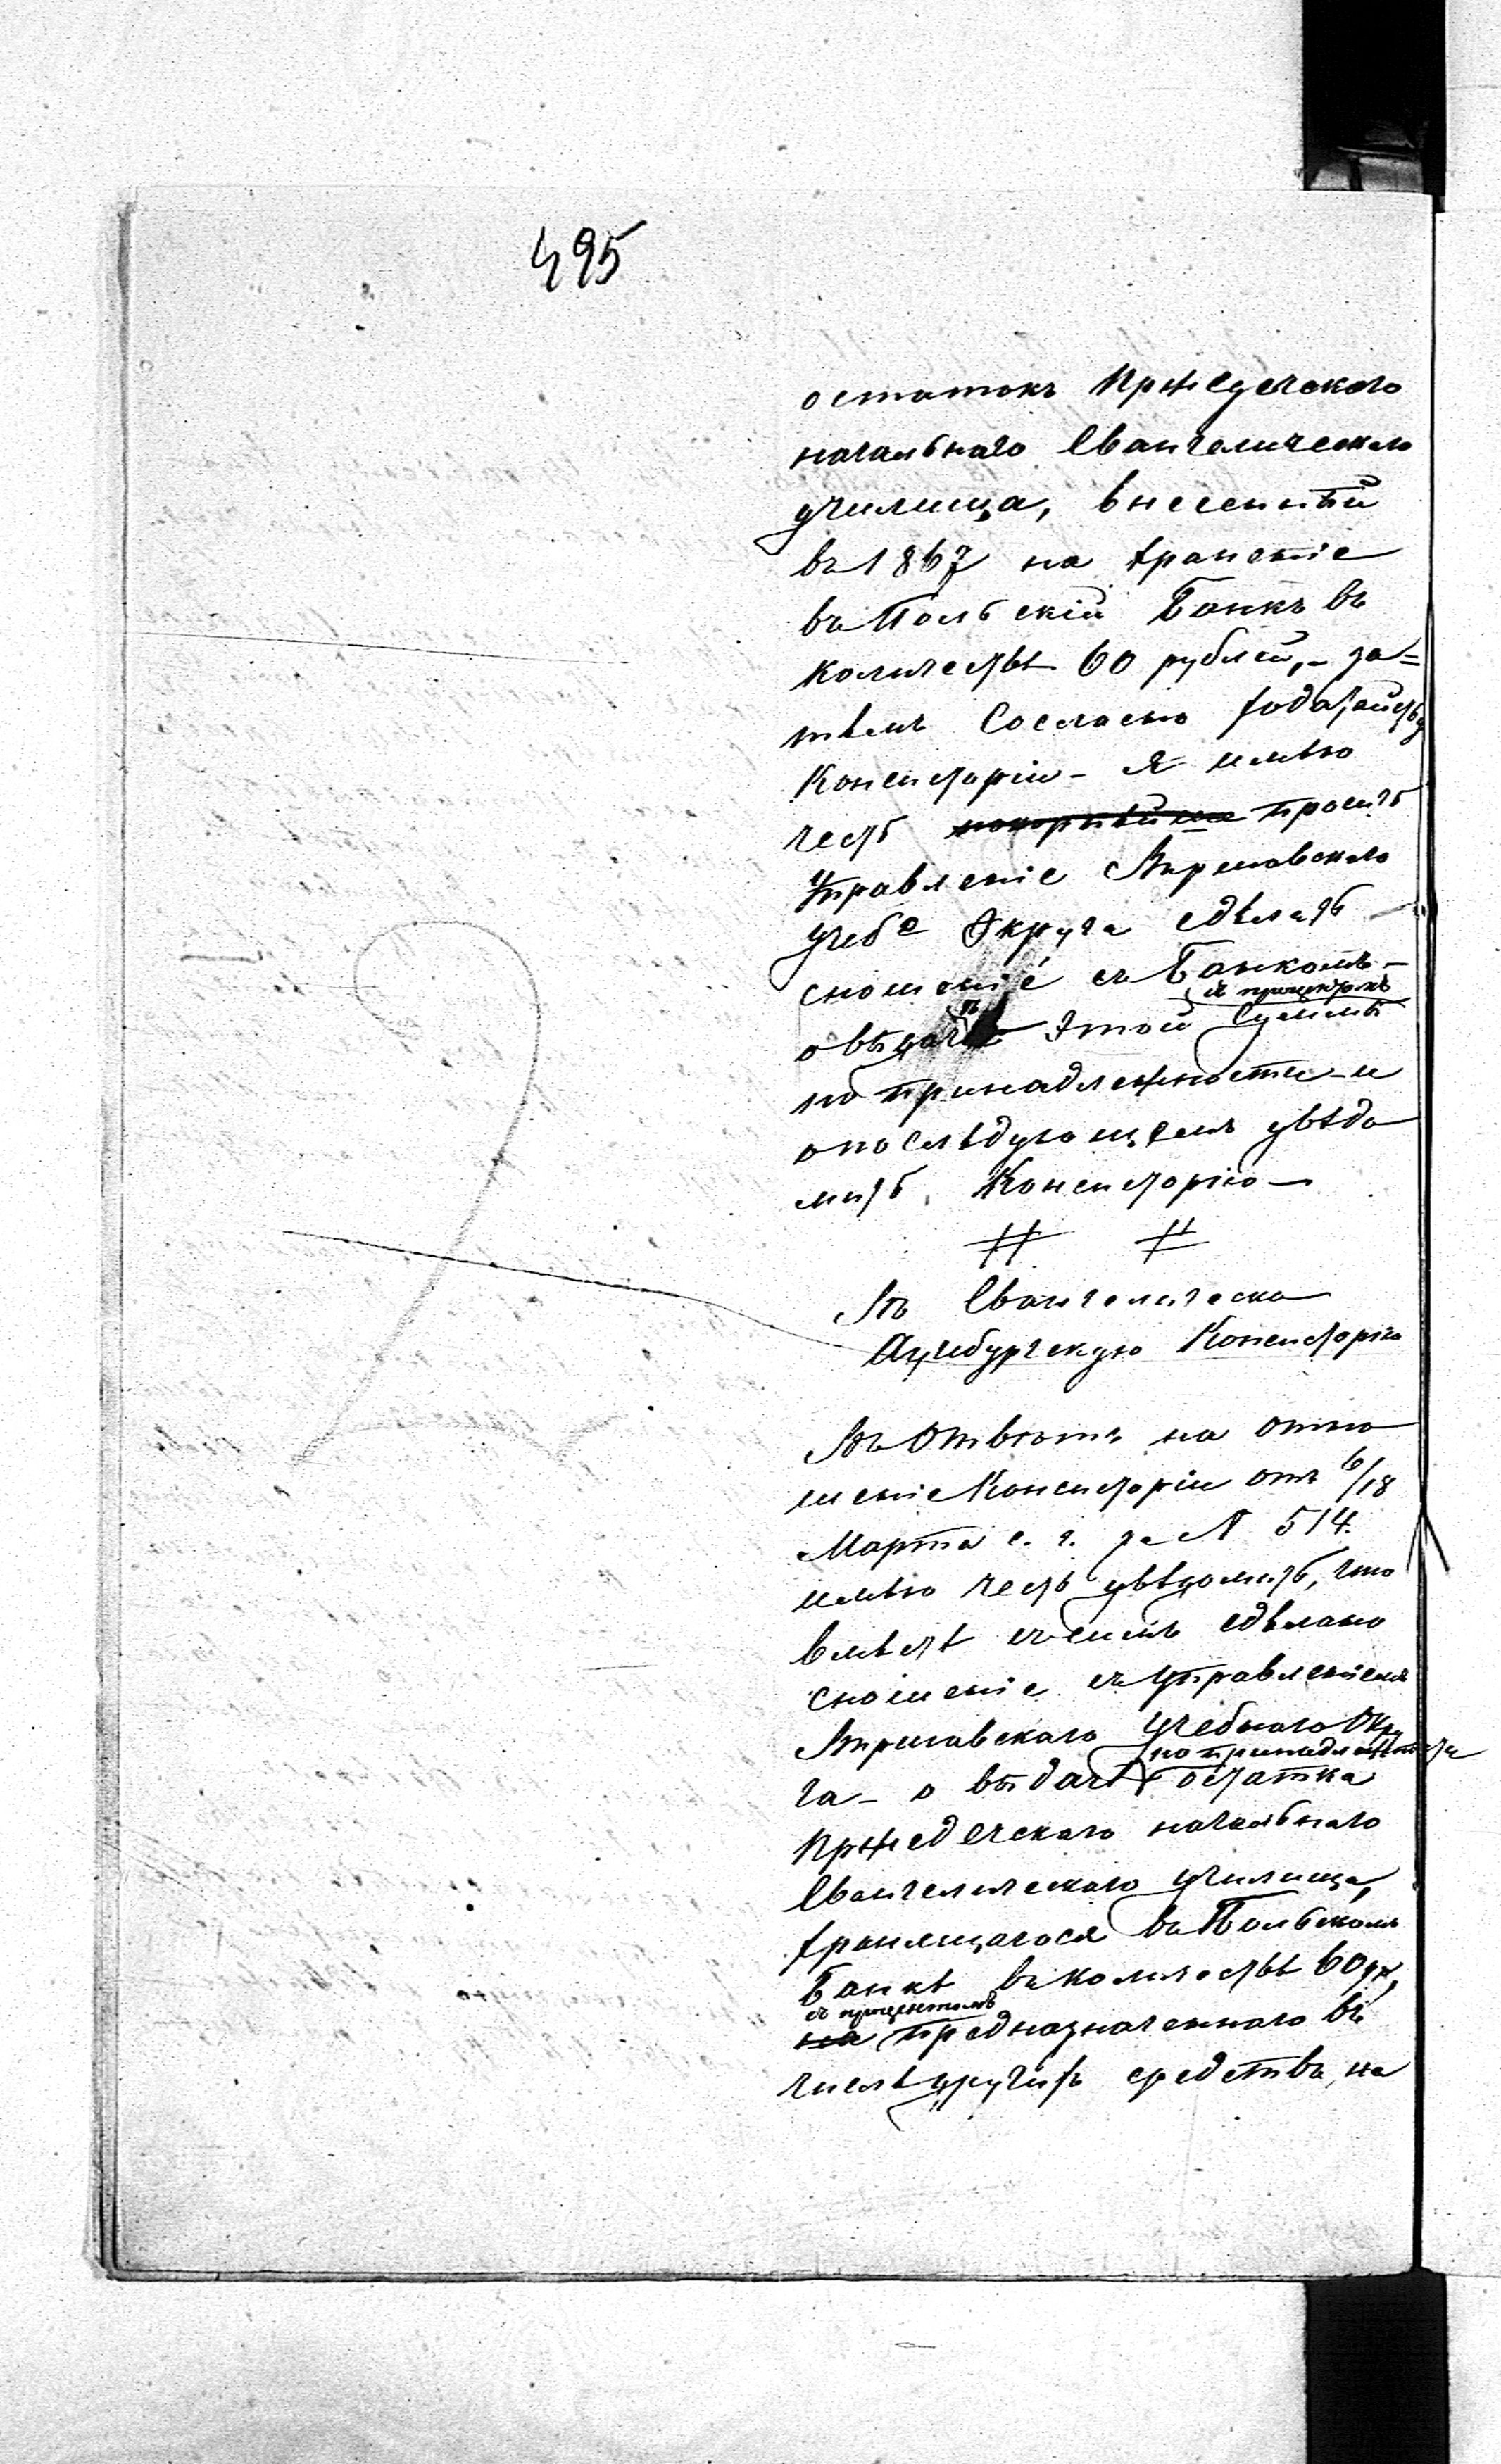 495
остатокъ Пржедечскаго
начальнаго Евангелическаго
училища, внесенный
въ 1867 на храненіе
въ Польскій Банкъ въ
количествѣ 60 рублей, – за=
тѣмъ Согласно ходатайству
Консисторіи – Я имѣю
честь покорнѣйше просить
Управленіе Варшавскаго
Учебо Округа сдѣлать
сношеніе съ Банкомъ –
съ процентомъ
о выдачѣ этой Суммы
по принадлежности – и
о послѣдующемъ увѣдо
мить Консисторію –
Въ Евангелическо
Аугсбургскую Консисторію
Въ Отвѣтъ на отно
шеніе Консисторіи отъ 6/18
Марта с. г. за N 514.
имѣю честь увѣдомить, что
вмѣстѣ съ симъ сдѣлано
сношеніе съ Управленіемъ
Варшавскаго Учебнаго Окру
по принадлежности
га – о выдачѣ остатка
Пржедечскаго начальнаго
Евангелическаго училища,
хранящагося въ Польскомъ
Банкѣ въ количествѣ 60 р,
съ процентомъ
на предназначеннаго въ
числѣ другихъ средствъ, на